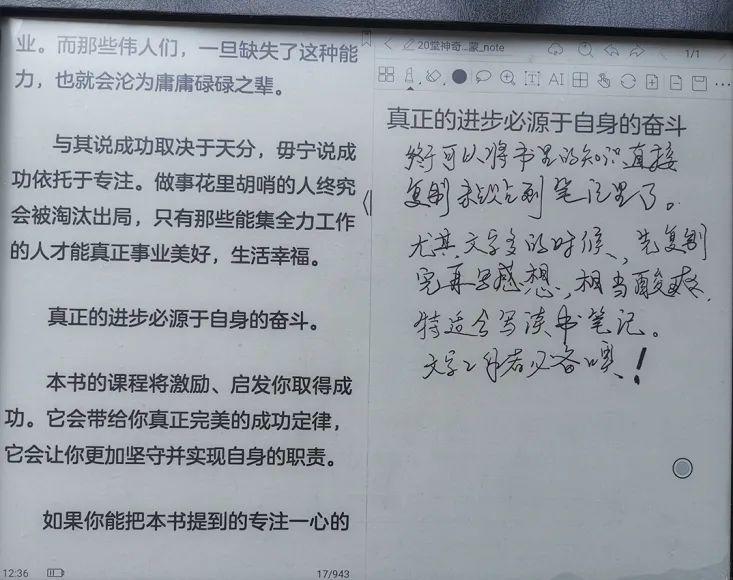 业。而那些伟人们，一旦缺失了这种能
力，也就会沦为庸庸碌碌之辈。
与其说成功取决于天分，毋宁说成
功依托于专注。做事花里胡哨的人终究
会被淘汰出局，只有那些能集全力工作
的人才能真正事业美好，生活幸福。
真正的进步必源于自身的奋斗。
本书的课程将激励、启发你取得成
功。它会带给你真正完美的成功定律，
它会让你更加坚守并实现自身的职责。
如果你能把本书提到的专注一心的
12:36
17/943
20堂神奇...蒙_note
1/1
AI
真正的进步必源于自身的奋斗
终于可以将书里的知识直接
复制粘贴到笔记里了。
尤其文字多的时候、先复制
完再写感想，相当酸爽，
特适合写读书笔记。
文字工作者必备噢！